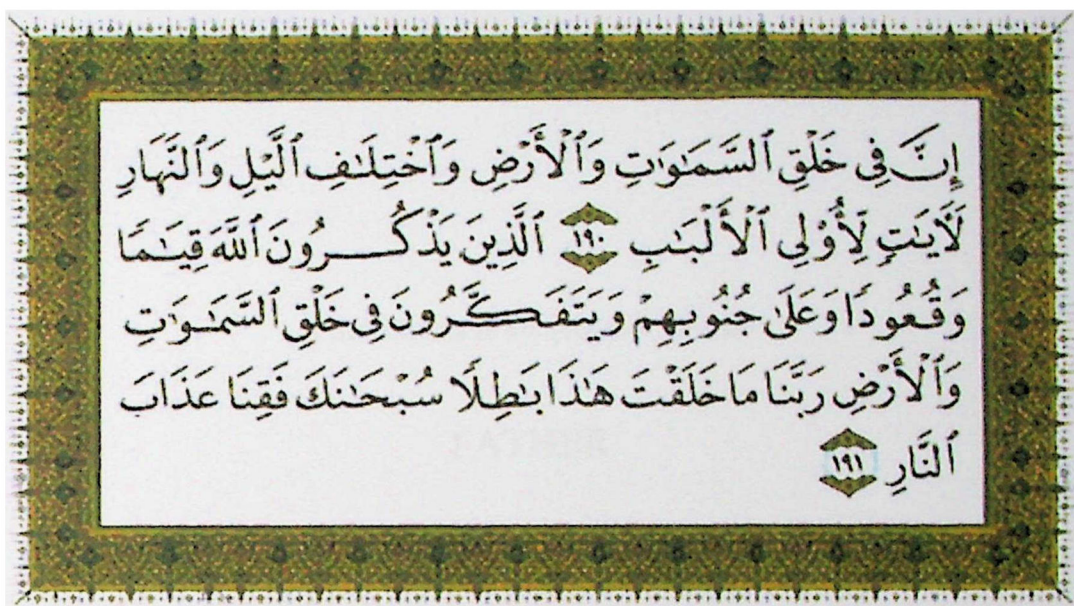 إِنَّ فِى خَلْقِ ٱلسَّمَٰوَٰتِ وَٱلْأَرْضِ وَٱخْتِلَٰفِ ٱلَّيْلِ وَٱلنَّهَارِ
لَءَايَٰتٍ لِّأُو۟لِى ٱلْأَلْبَٰبِ ١٩٠ ٱلَّذِينَ يَذْكُرُونَ ٱللَّهَ قِيَٰمًا
وَقُعُودًا وَعَلَىٰ جُنُوبِهِمْ وَيَتَفَكَّرُونَ فِى خَلْقِ ٱلسَّمَٰوَٰتِ
وَٱلْأَرْضِ رَبَّنَا مَا خَلَقْتَ هَٰذَا بَٰطِلًا سُبْحَٰنَكَ فَقِنَا عَذَابَ
ٱلنَّارِ ١٩١